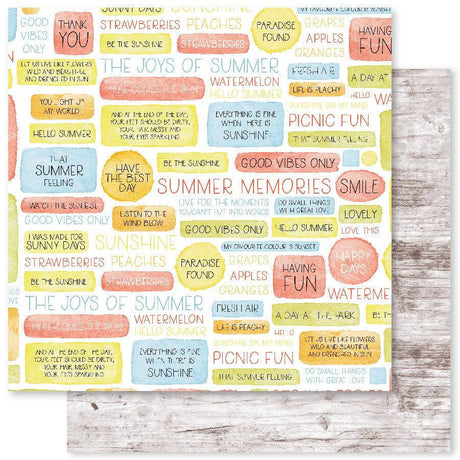 GOOD VIBES ONLY
THANK YOU
SUNSHINE
STRAWBERRIES
PEACHES
BE THE SUNSHINE
STRAWBERRIES
PARADISE FOUND
MY FAVOURITE COLOUR IS SUNSET
GRAPES
APPLES
ORANGES
HAVING FUN
LET US LIVE LIKE FLOWERS
WILD AND BEAUTIFUL
AND DRENCHED IN SUN
THE JOYS OF SUMMER
FRESH AIR
HERE COMES THE SUN
WATERMELON
HELLO SUMMER
LIFE IS PEACHY
A DAY AT
YOU LIGHT UP
MY WORLD
HELLO SUMMER
AND AT THE END OF THE DAY,
YOUR FEET SHOULD BE DIRTY,
YOUR HAIR MESSY AND
YOUR EYES SPARKLING
EVERYTHING IS FINE
WHEN THERE IS
SUNSHINE
SUNSHINE ON MY MIND
PICNIC FUN
THAT SUMMER FEELING
THAT
SUMMER
FEELING
HAVE
THE BEST
DAY
BE THE SUNSHINE
GOOD VIBES ONLY
SUMMER MEMORIES
SMILE
WATCH THE SUNRISE
LISTEN TO THE
WIND BLOW
LIVE FOR THE MOMENTS
YOU CAN'T PUT INTO WORDS
DO SMALL THINGS
WITH GREAT LOVE
LOVELY
I WAS MADE FOR
SUNNY DAYS
SUNSHINE
GOOD VIBES ONLY
HELLO SUMMER
LOVE THIS
STRAWBERRIES
PEACHES
PARADISE
FOUND
MY FAVOURITE COLOUR IS SUNSET
GRAPES
APPLES
ORANGES
HAVING
FUN
HAPPY
DAYS
BE THE SUNSHINE
STRAWBERRIES
WATERME
THE JOYS OF SUMMER
FRESH AIR
A DAY AT THE PARK
HERE COMES THE SUN
WATERMELON
HELLO SUMMER
LIFE IS PEACHY
LET US LIVE LIKE FLOWERS
WILD AND BEAUTIFUL
AND DRENCHED IN SUN
AND AT THE END OF THE DAY,
YOUR FEET SHOULD BE DIRTY,
YOUR HAIR MESSY AND
YOUR EYES SPARKLING
EVERYTHING IS FINE
WHEN THERE IS
SUNSHINE
SUNSHINE ON MY MIND
PICNIC FUN
THAT SUMMER FEELING
DO SMALL THINGS
WITH GREAT LOVE